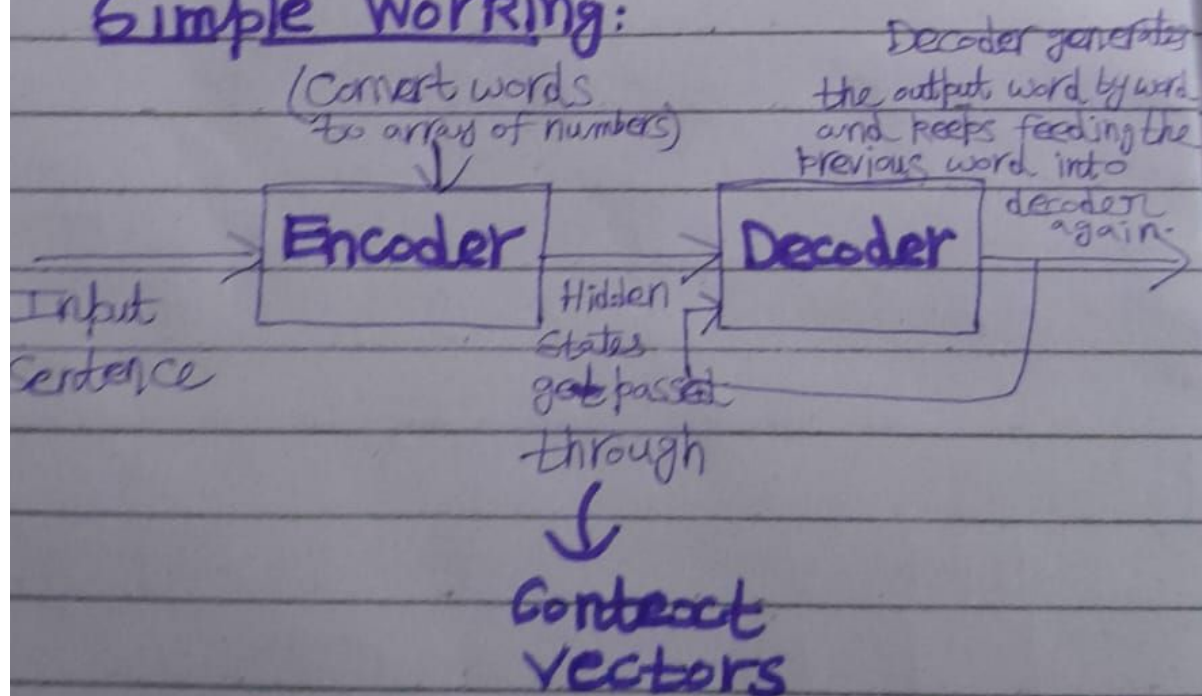 Simple Working:
(Convert words
to array of numbers)
Decoder generates
the output word by word
and keeps feeding the
previous word into
decoder
again.
Encoder
Decoder
Input
Sentence
Hidden
States
get passed
through
Contract
vectors